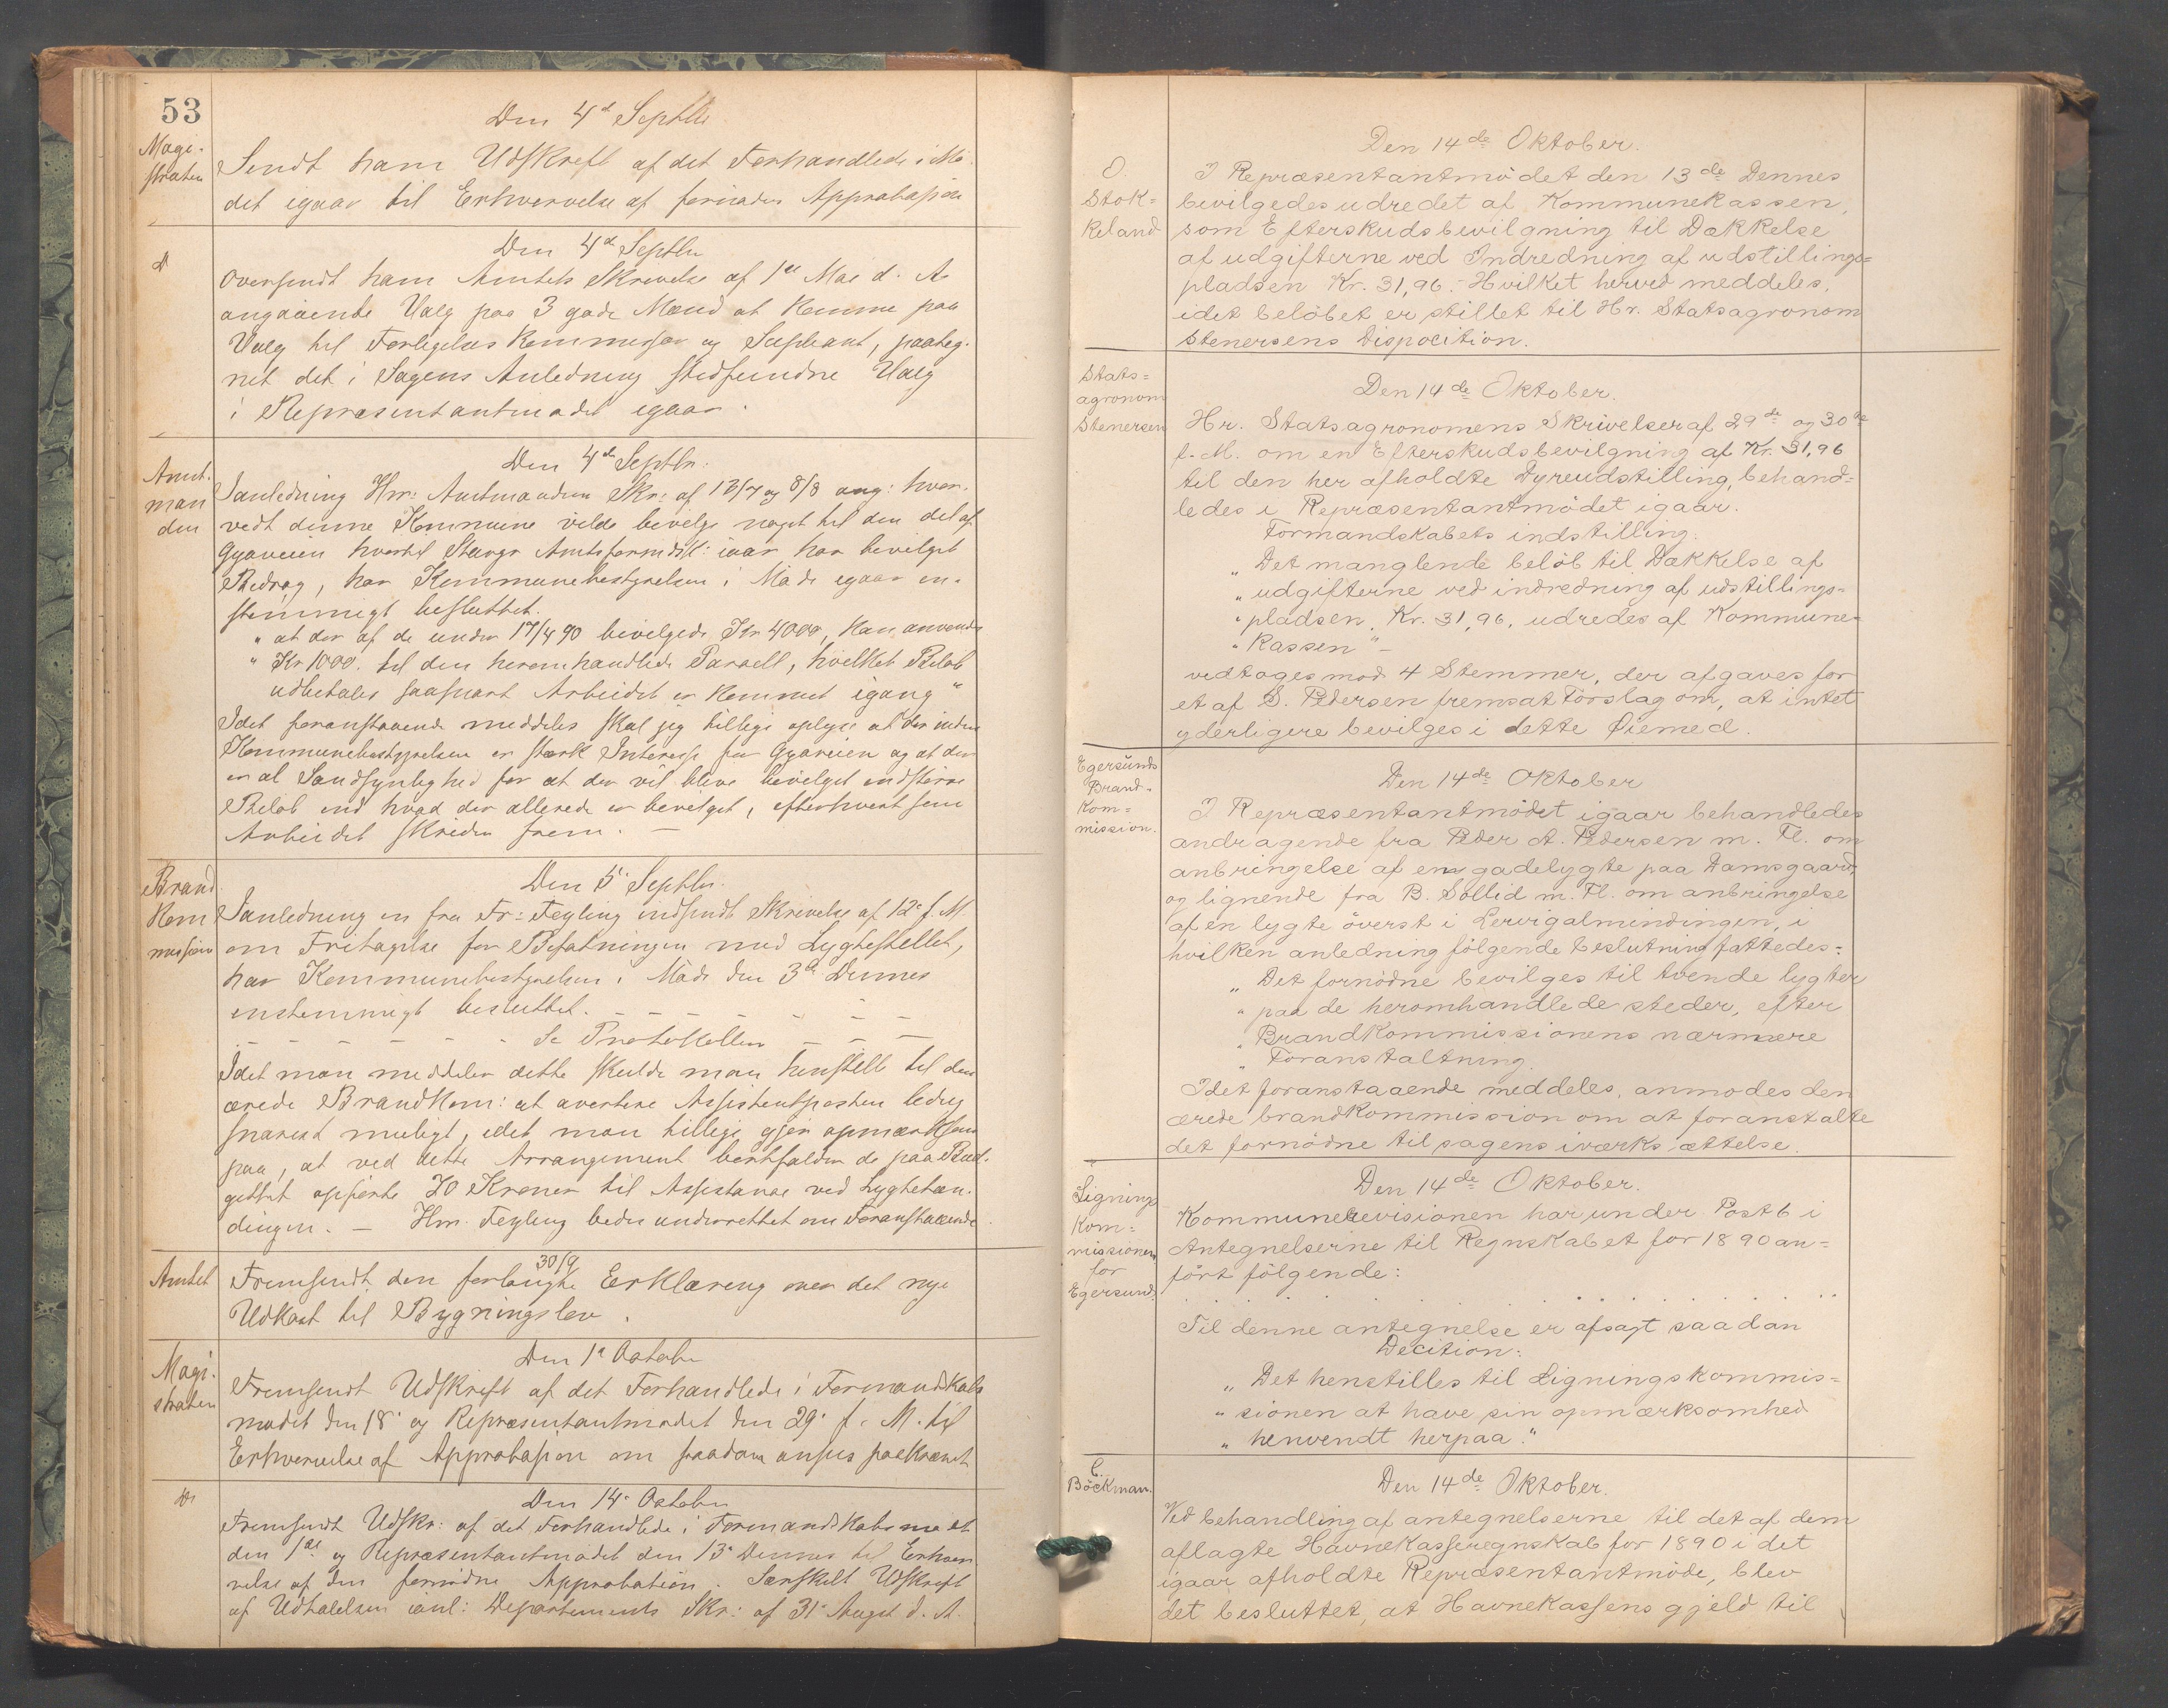 53
Den 4de Septbr
Magi-
straten
Sendt ham Udskrift af det Forhandlede i Mö-
det igaar til Erhvervelse af fornöden Approbasjon
Den 4de Septbr
Do
Oversendt ham Amtets Skrivelse af 1ste Mai d. A.
angaaende Valg paa 3 gode Mænd at komme paa
Valg til Forligelseskommissær og Supleant, paateg-
net det i Sagens Anledning stedfundne Valg
i Repræsentantmödet igaar.
Den 4de Septbr.
Amt-
man
den
I anledning Hr: Amtmandens Skr: af 13/7 og 8/8 ang: hvor-
vidt denne Kommune vilde bevilge noget til den del af
Gyaveien hvortil Stavgr Amtsformdsk: iaar har bevilget
Bidrag, har Kommunebestyrelsen i Möde igaar en-
stemmigt besluttet.
" at der af de under 17/4 90 bevilgede Kr 4000, kan anvendes
" Kr 1000. til den heromhandlede Parcell, hvilket Belöb
udbetales saasnart Arbeidet er kommet igang "
Idet foranstaaende meddeles skal jeg tillige oplyse at der inden
Kommunebestyrelsen er stærk Interesse for Gyaveien og at der
er al Sandsynlighed for at der vil blive bevilget endstörre
Belöb end hvad der allerede er bevilget, efterhvert som
Arbeidet skrider frem. —
Den 5' Septbr.
Brand
Kom
missjonen
I anledning en fra Fr: Feyling indsendt Skrivelse af 12' f. M.
om Fritagelse for Befatningen med Lygtestellet,
har Kommunebestyrelsen i Möde den 3de Dennes
enstemmigt besluttet. — — — — — —
— — — — — Se Protokollen — — —
Idet man meddeler dette skulde man henstille til den
ærede Brandkom: at avertere Assistentposten ledig
snarest muligt, idet man tillige gjör opmærksom
paa, at ved dette Arrangement bortfalder de paa Bud-
gettet opförte 20 Kroner til Assistanse ved Lygtetæn-
dingen. — Hr. Feyling bedes underrettet om Foranstaaende.
30/9
Amtet
Fremsendt den forlangte Erklæring over det nye
Udkast til Bygningslov.
Den 1' October
Magi-
straten
Fremsendt Udskrift af det Forhandlede i Formandskabs
mödet den 18' og Repræsentantmödet den 29' f. M. til
Erhvervelse af Approbasjon om saadan ansees paakrævet
Den 14' October
Do
Fremsendt Udskr: af det Forhandlede i Formandskabsmödet
den 1ste og Repræsentantmödet den 13' Dennes til Erhver-
velse af den fornödne Approbation. Særskilt Udskrift
af Udtalelsen ianl: Departements Skr: af 31' August d. A.
Den 14de Oktober.
O.
Stok-
keland
I Repræsentantmödet den 13de Dennes
bevilgedes udredet af Kommunekassen,
som Efterskudsbevilgning til Dækkelse
af udgifterne ved Indredning af udstillings-
pladsen Kr. 31,96.- Hvilket herved meddeles,
idet belöbet er stillet til Hr. Statsagronom
Stenersens Dispocition.
Stats-
agronom
Stenersen
Den 14de Oktober.
Hr. Statsagronomens Skrivelser af 29de og 30te
f. M. om en Efterskudsbevilgning af Kr. 31,96
til den her afholdte Dyreudstilling, behand-
ledes i Repræsentantmödet igaar.
Formandskabets indstilling:
" Det manglende belöb til Dækkelse af
" udgifterne ved indredning af udstillings-
" pladsen, Kr. 31,96, udredes af Kommune-
" kassen " –
vedtoges mod 4 Stemmer, der afgaves for
et af S. Pedersen fremsat Forslag om, at intet
yderligere bevilges i dette Øiemed.
Egersunds
Brand-
kom-
mission.
Den 14de Oktober
I Repræsentantmödet igaar behandledes
andragende fra Peder A. Pedersen m. Fl. om
anbringelse af en gadelygte paa Damsgaard,
og lignende fra B. Sollid m. Fl. om anbringelse
af en lygte överst i Lervigalmindingen, i
hvilken anledning fölgende beslutning fattedes:
" Det fornödne bevilges til tvende lygter
" paa de heromhandlede steder, efter
" Brandkommissionens nærmere
" Foranstaltning.
Idet foranstaaende meddeles, anmodes den
ærede brandkommission om at foranstalte
det fornödne til sagens iværksættelse.
Lignings
kom-
missionen
for
Egersund.
Den 14de Oktober.
Kommunerevisionen har under Post 6 i
Antegnelserne til Regnskabet for 1890 an-
fört fölgende:
. . . . . . . . . . . . . . .
Til denne antegnelse er afsagt saadan
Decition:
" Det henstilles til Ligningskommis-
" sionen at have sin opmærksomhed
" henvendt herpaa."
C.
Böckman.
Den 14de Oktober.
Ved behandling af antegnelserne til det af dem
aflagte Havnekasseregnskab for 1890 i det
igaar afholdte Repræsentantmöde, blev
det besluttet, at Havnekassens gjeld til